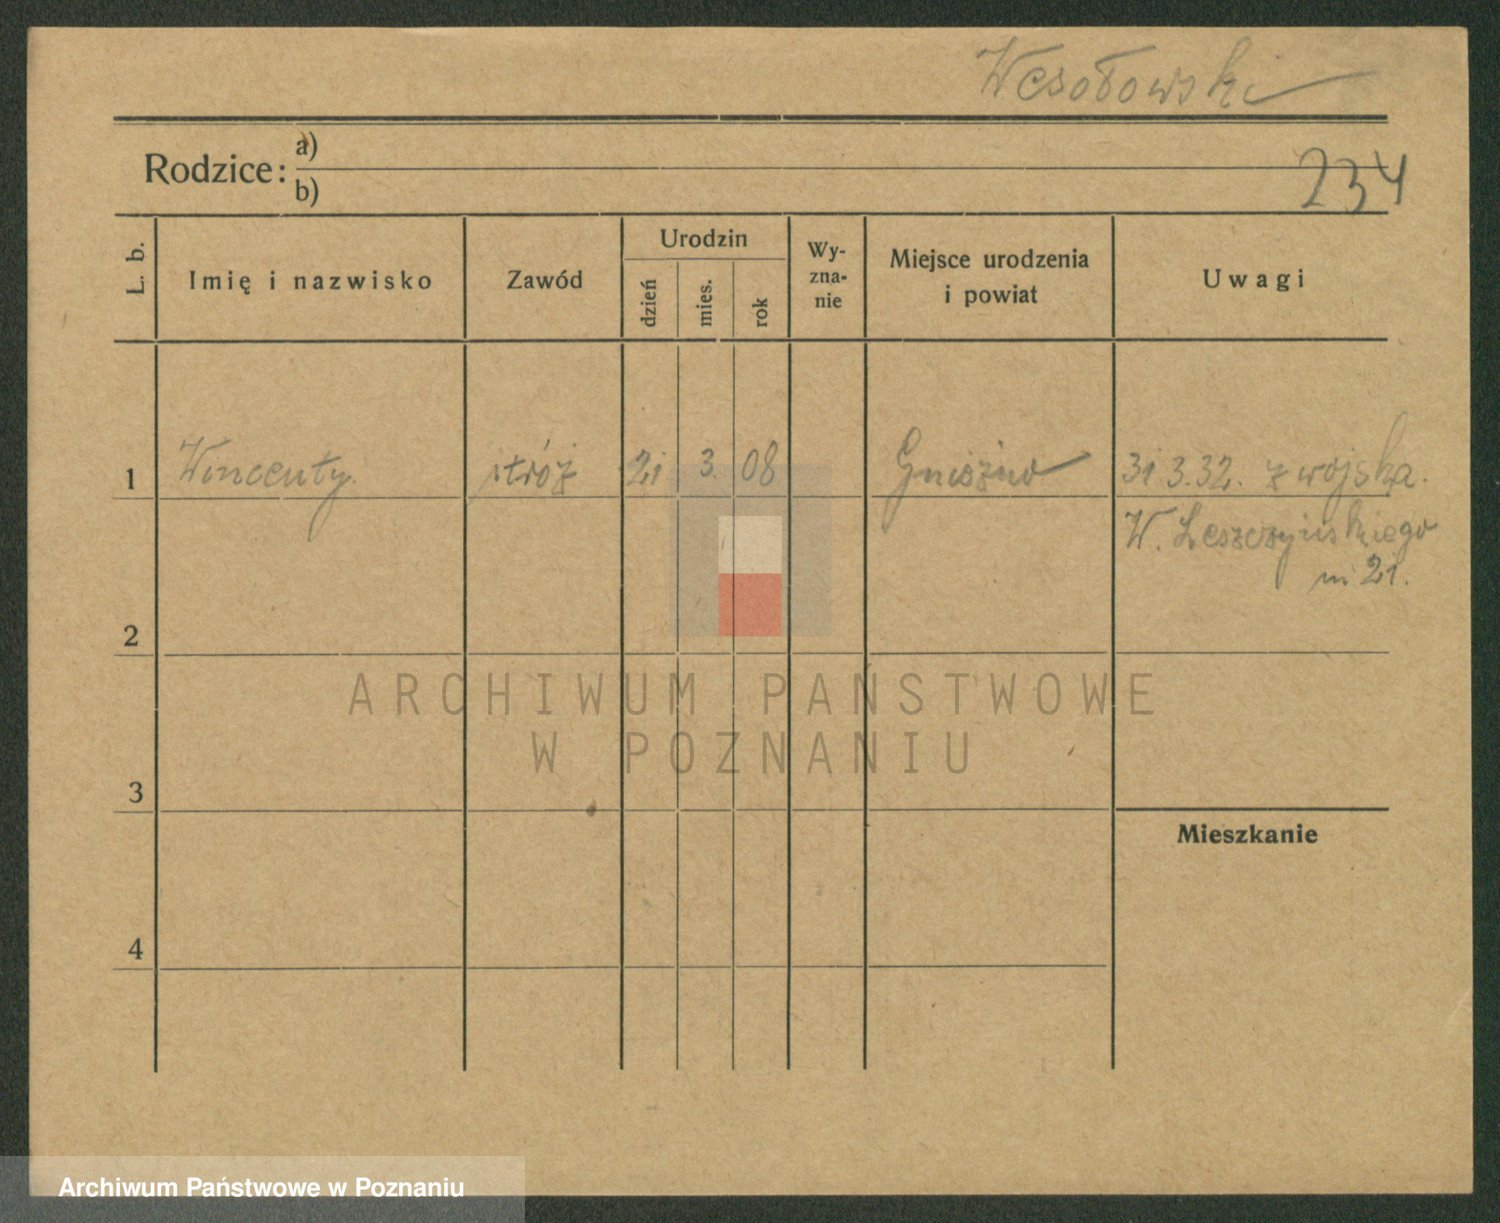 Wesołowski
Rodzice: a)
b)
234
L. b.
Imię i nazwisko
Zawód
Urodzin
dzień
mies.
rok
Wy-
zna-
nie
Miejsce urodzenia
i powiat
Uwagi
1 Wincenty. stróż 21 3. 08 Gniezno 31 3.32. z wojska.
W. Leszczyńskiego
m 21.
2
3
Mieszkanie
4
ARCHIWUM PAŃSTWOWE
W POZNANIU
Archiwum Państwowe w Poznaniu